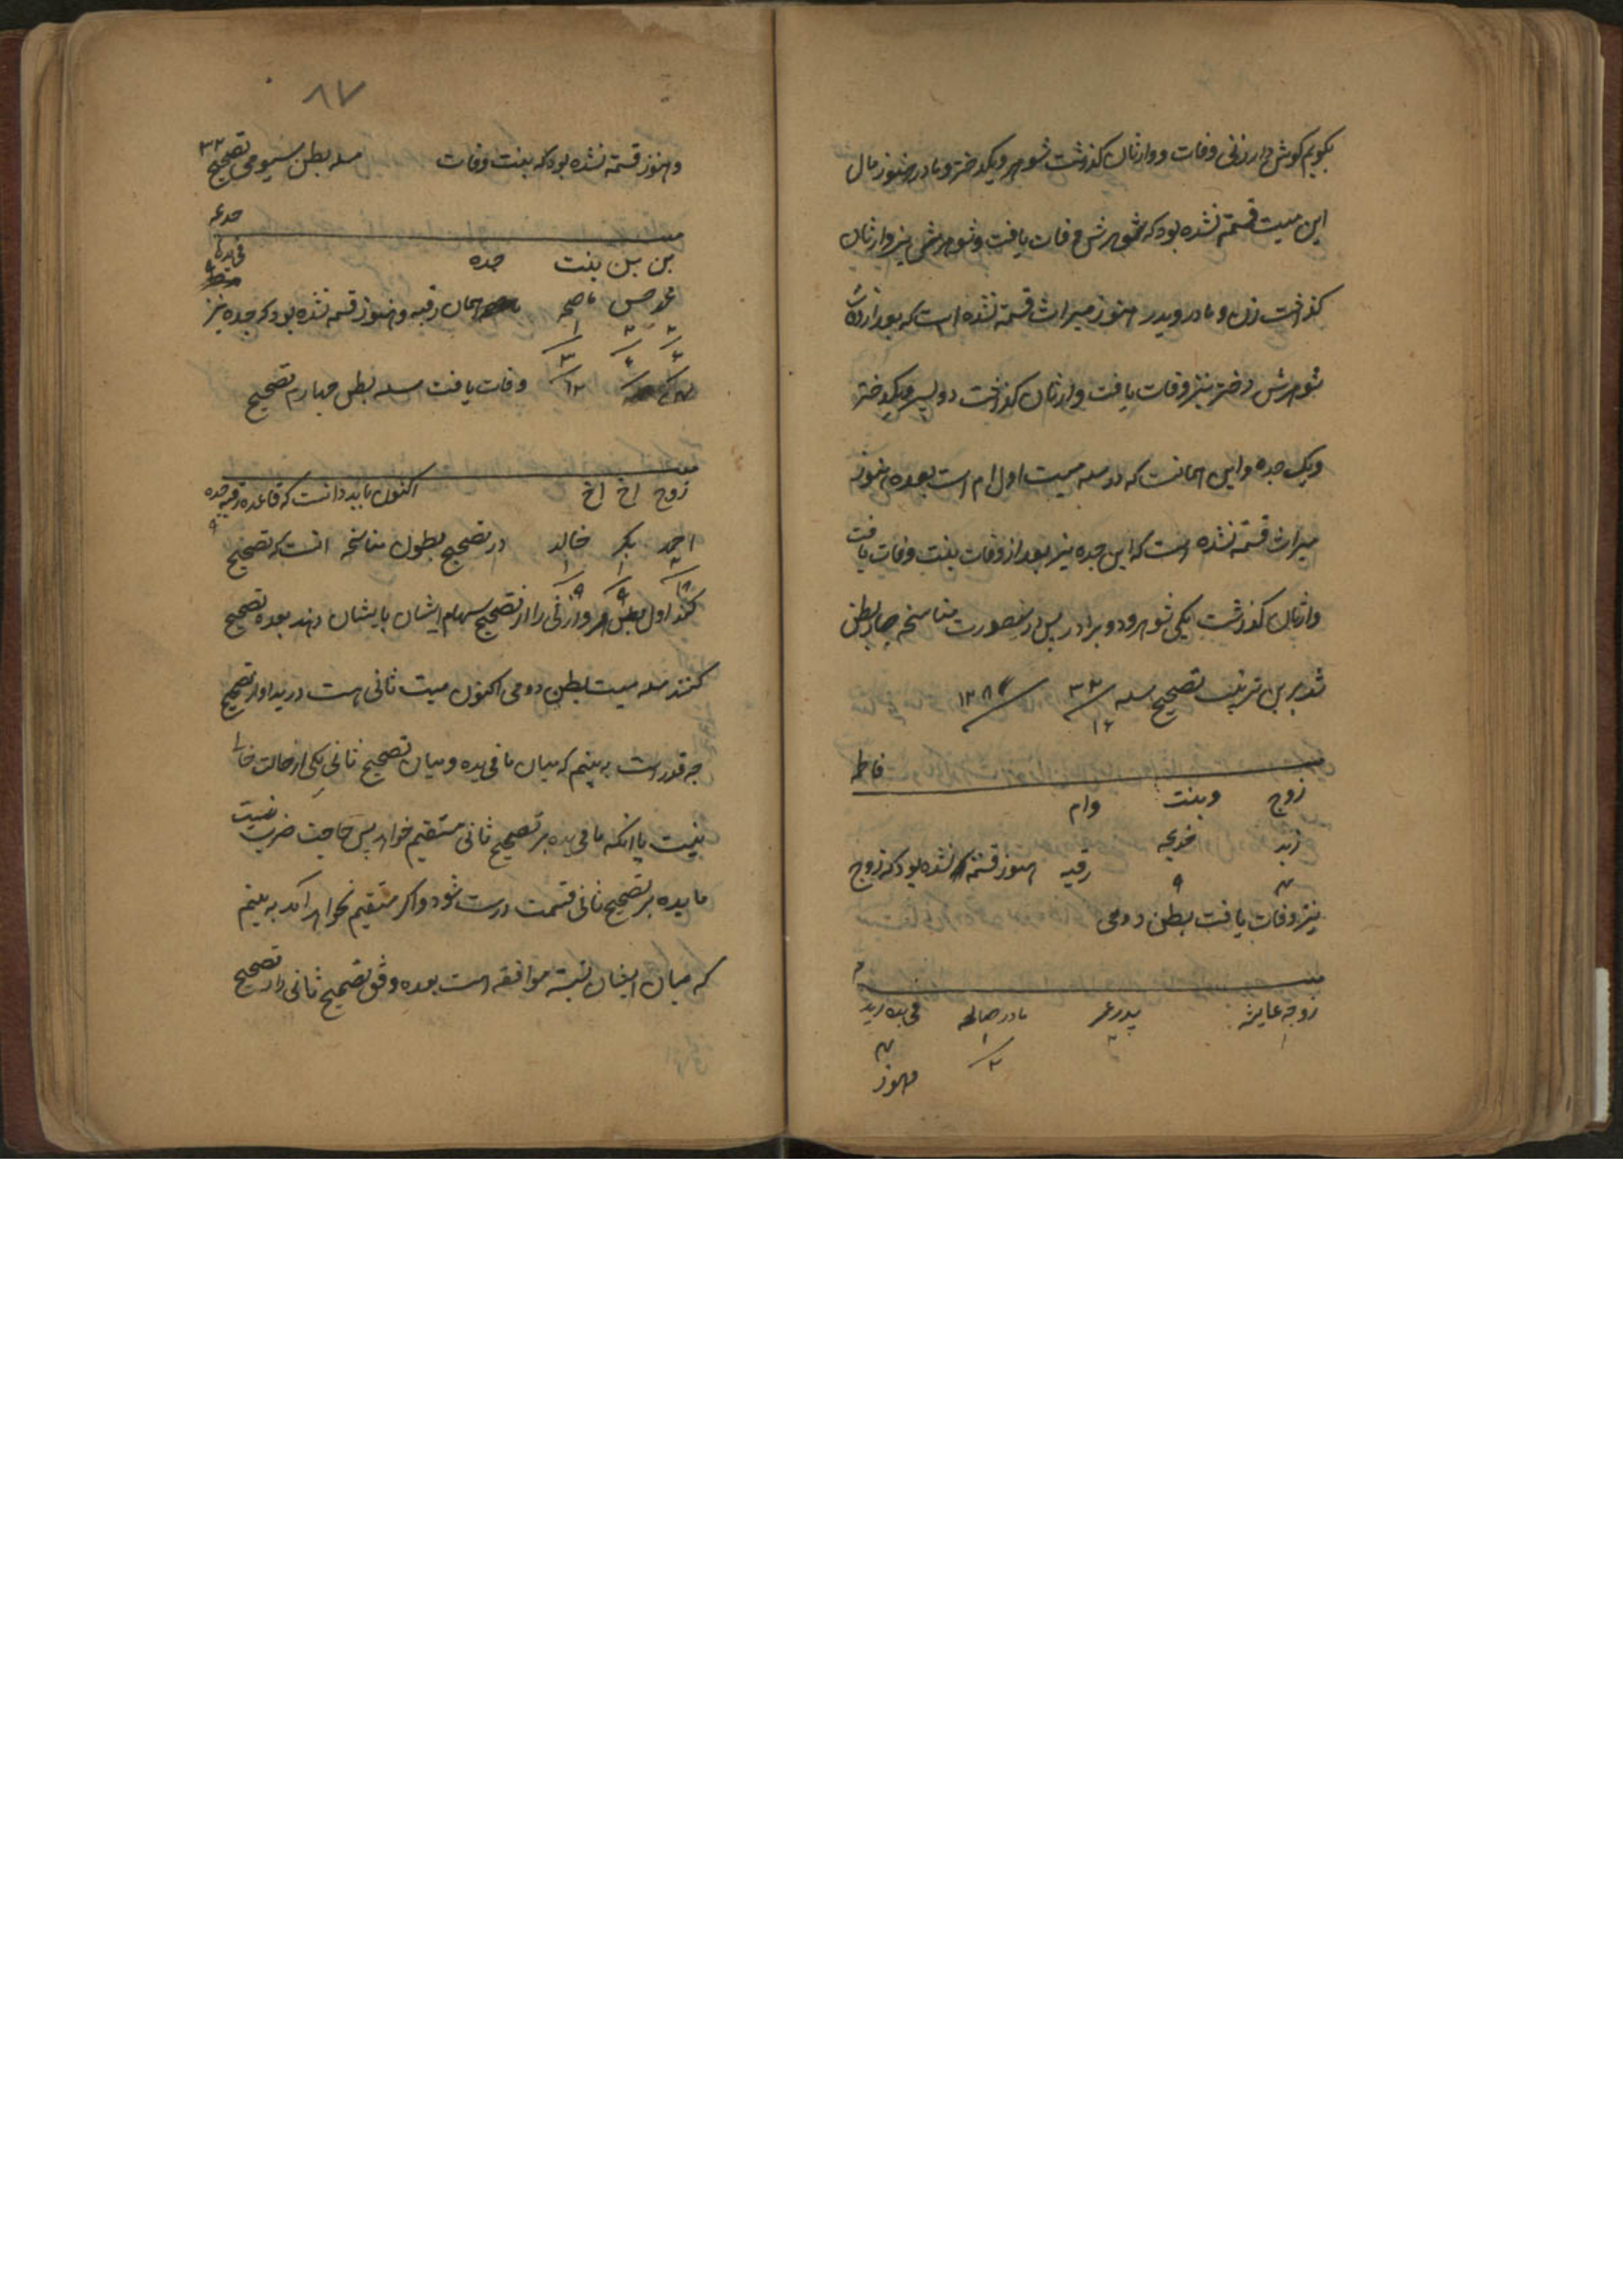 بکویم کوش دار زنی وفات و وارثان کذشت شوهر و یکدختر و مادر هنوز مال
این میت قسمة نشده بود که شوهرش وفات یافت و شوهرش نیز وارثان
کذاشت زن و مادر و پدر هنوز میراث قسمة نشده است که بعد از وفات
شوهرش دختر نیز وفات یافت وارثان کذاشت دو پسر و یکدختر
ویک جده و این همانست که در مسله میت اول ام است بعده هنوز
میراث قسمة نشده است که این جده نیز بعد از وفات بنت وفات یافت
وارثان کذشت یکی شوهر و دو برادر پس درینصورت مناسخه چهار بطن
شد برین ترتیب تصحیح مسله ۳۲ ۱۲۸
۱۶
فاطمه
زوج وبنت وام
زید خدیجه رقیه هنوز قسمة نشده بود که زوج
۴ ۹
نیز وفات یافت بطن دومی
میت ۴
زوجه عایشه پدر عمر مادر صالحه فی یده زید
۱ ۲ ۱ ۴
۲
وهنوز
۸۷
وهنوز قسمة نشده بود که بنت وفات مسله بطن سیومی تصحیح ۳۲
میت خدیجه
بن بن بنت جده
محمد حسن همان رقیه و هنوز قسمه نشده بود که جده نیز
۲ ۲ ۱
۶ ۶ ۳
۱۲ وفات یافت مسله بطن چهارم تصحیح
میت
زوج اخ اخ اکنون باید دانست که قاعده رقیه جده
احمد بکر خالد در تصحیح بطون مناسخه انست که تصحیح
۲ ۱ ۱
۱۸ ۹ ۹
کند اول هر وارثی را از تصحیح سهام ایشان بایشان دهند بعده تصحیح
کنند مسله میت بطن دومی اکنون میت ثانی هست در ید او از تصحیح
چه قدر است به بینم که میان ما فی یده و میان تصحیح ثانی یکی از حالت خالی
نیست یا انکه ما فی یده بر تصحیح ثانی مستقیم خواهد پس حاجت ضرب نیست
ما یده بر تصحیح ثانی قسمت درست شود و اکر مستقیم نخواهد آمد به بینم
که میان ایشان نسبة موافقه است بعده وفق تصحیح ثانی را در تصحیح